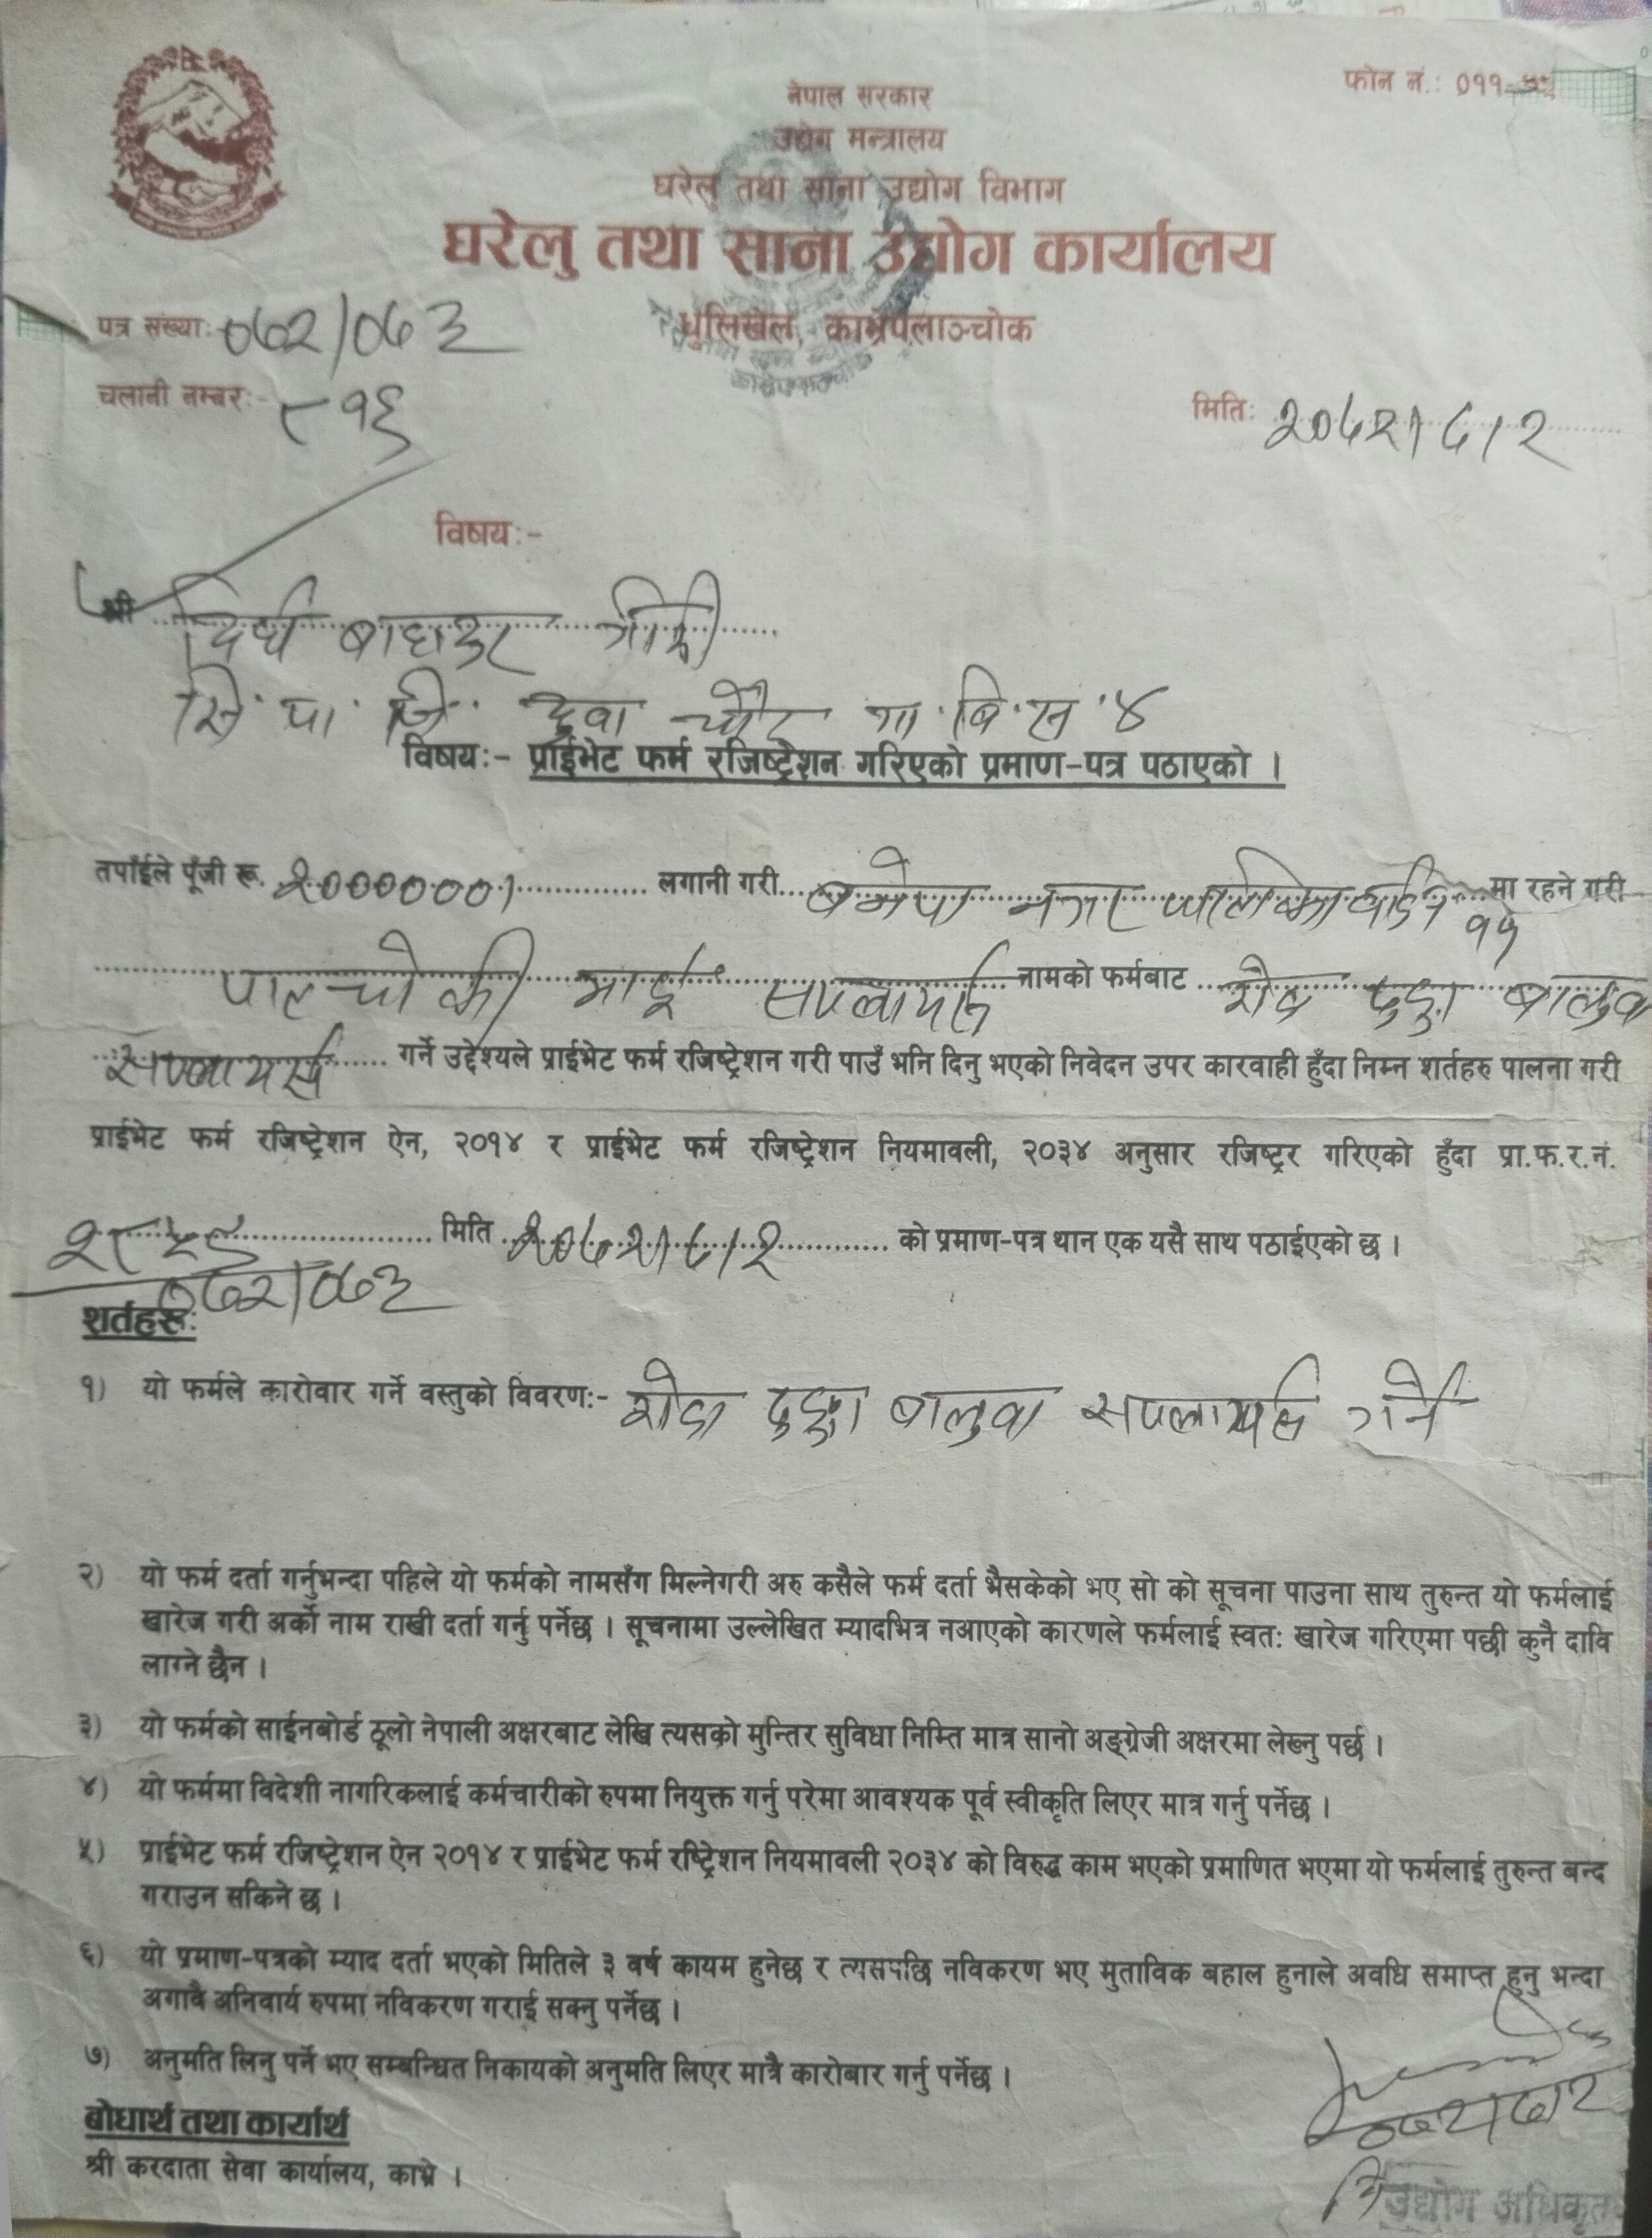 फोन नं.: ०११-
नेपाल सरकार
उद्योग मन्त्रालय
घरेलु तथा साना उद्योग विभाग
घरेलु तथा साना उद्योग कार्यालय
धुलिखेल, काभ्रेपलाञ्चोक
पत्र संख्या: ०७२/०७३
चलानी नम्बर:- ८१६
मिति: २०७२।८।२
विषय:-
श्री दिर्घ बाहादुर गिरी
सि. पा. जि. दुवा चौर गा. बि. स. ४
विषय:- प्राईभेट फर्म रजिष्ट्रेशन गरिएको प्रमाण-पत्र पठाएको ।
तपाँईले पूँजी रू. लगानी गरी बनेपा नगर पालिका वार्ड नं मा रहने गरी
माई सप्लायर्स नामको फर्मबाट रोडा ढुङ्गा बालुवा
सप्लायर्स गर्ने उद्देश्यले प्राईभेट फर्म रजिष्ट्रेशन गरी पाउँ भनि दिनु भएको निवेदन उपर कारवाही हुँदा निम्न शर्तहरु पालना गरी
प्राईभेट फर्म रजिष्ट्रेशन ऐन, २०१४ र प्राईभेट फर्म रजिष्ट्रेशन नियमावली, २०३४ अनुसार रजिष्ट्रर गरिएको हुँदा प्रा.फ.र.नं.
मिति २०७२।८।२ को प्रमाण-पत्र थान एक यसै साथ पठाईएको छ ।
०७२/०७३
शर्तहरु:
१) यो फर्मले कारोवार गर्ने वस्तुको विवरण:- रोडा ढुङ्गा बालुवा सप्लायर्स गर्ने
२) यो फर्म दर्ता गर्नुभन्दा पहिले यो फर्मको नामसँग मिल्नेगरी अरु कसैले फर्म दर्ता भैसकेको भए सो को सूचना पाउना साथ तुरुन्त यो फर्मलाई
खारेज गरी अर्को नाम राखी दर्ता गर्नु पर्नेछ । सूचनामा उल्लेखित म्यादभित्र नआएको कारणले फर्मलाई स्वत: खारेज गरिएमा पछी कुनै दावि
लाग्ने छैन ।
३) यो फर्मको साईनबोर्ड ठूलो नेपाली अक्षरबाट लेखि त्यसको मुन्तिर सुविधा निम्ति मात्र सानो अङ्ग्रेजी अक्षरमा लेख्नु पर्छ ।
४) यो फर्ममा विदेशी नागरिकलाई कर्मचारीको रुपमा नियुक्त गर्नु परेमा आवश्यक पूर्व स्वीकृति लिएर मात्र गर्नु पर्नेछ ।
५) प्राईभेट फर्म रजिष्ट्रेशन ऐन २०१४ र प्राईभेट फर्म रष्ट्रिेशन नियमावली २०३४ को विरुद्ध काम भएको प्रमाणित भएमा यो फर्मलाई तुरुन्त बन्द
गराउन सकिने छ ।
६) यो प्रमाण-पत्रको म्याद दर्ता भएको मितिले ३ वर्ष कायम हुनेछ र त्यसपछि नविकरण भए मुताविक बहाल हुनाले अवधि समाप्त हुनु भन्दा
अगावै अनिवार्य रुपमा नविकरण गराई सक्नु पर्नेछ ।
७) अनुमति लिनु पर्ने भए सम्बन्धित निकायको अनुमति लिएर मात्रै कारोबार गर्नु पर्नेछ ।
बोधार्थ तथा कार्यार्थ
श्री करदाता सेवा कार्यालय, काभ्रे ।
उद्योग अधिकृत